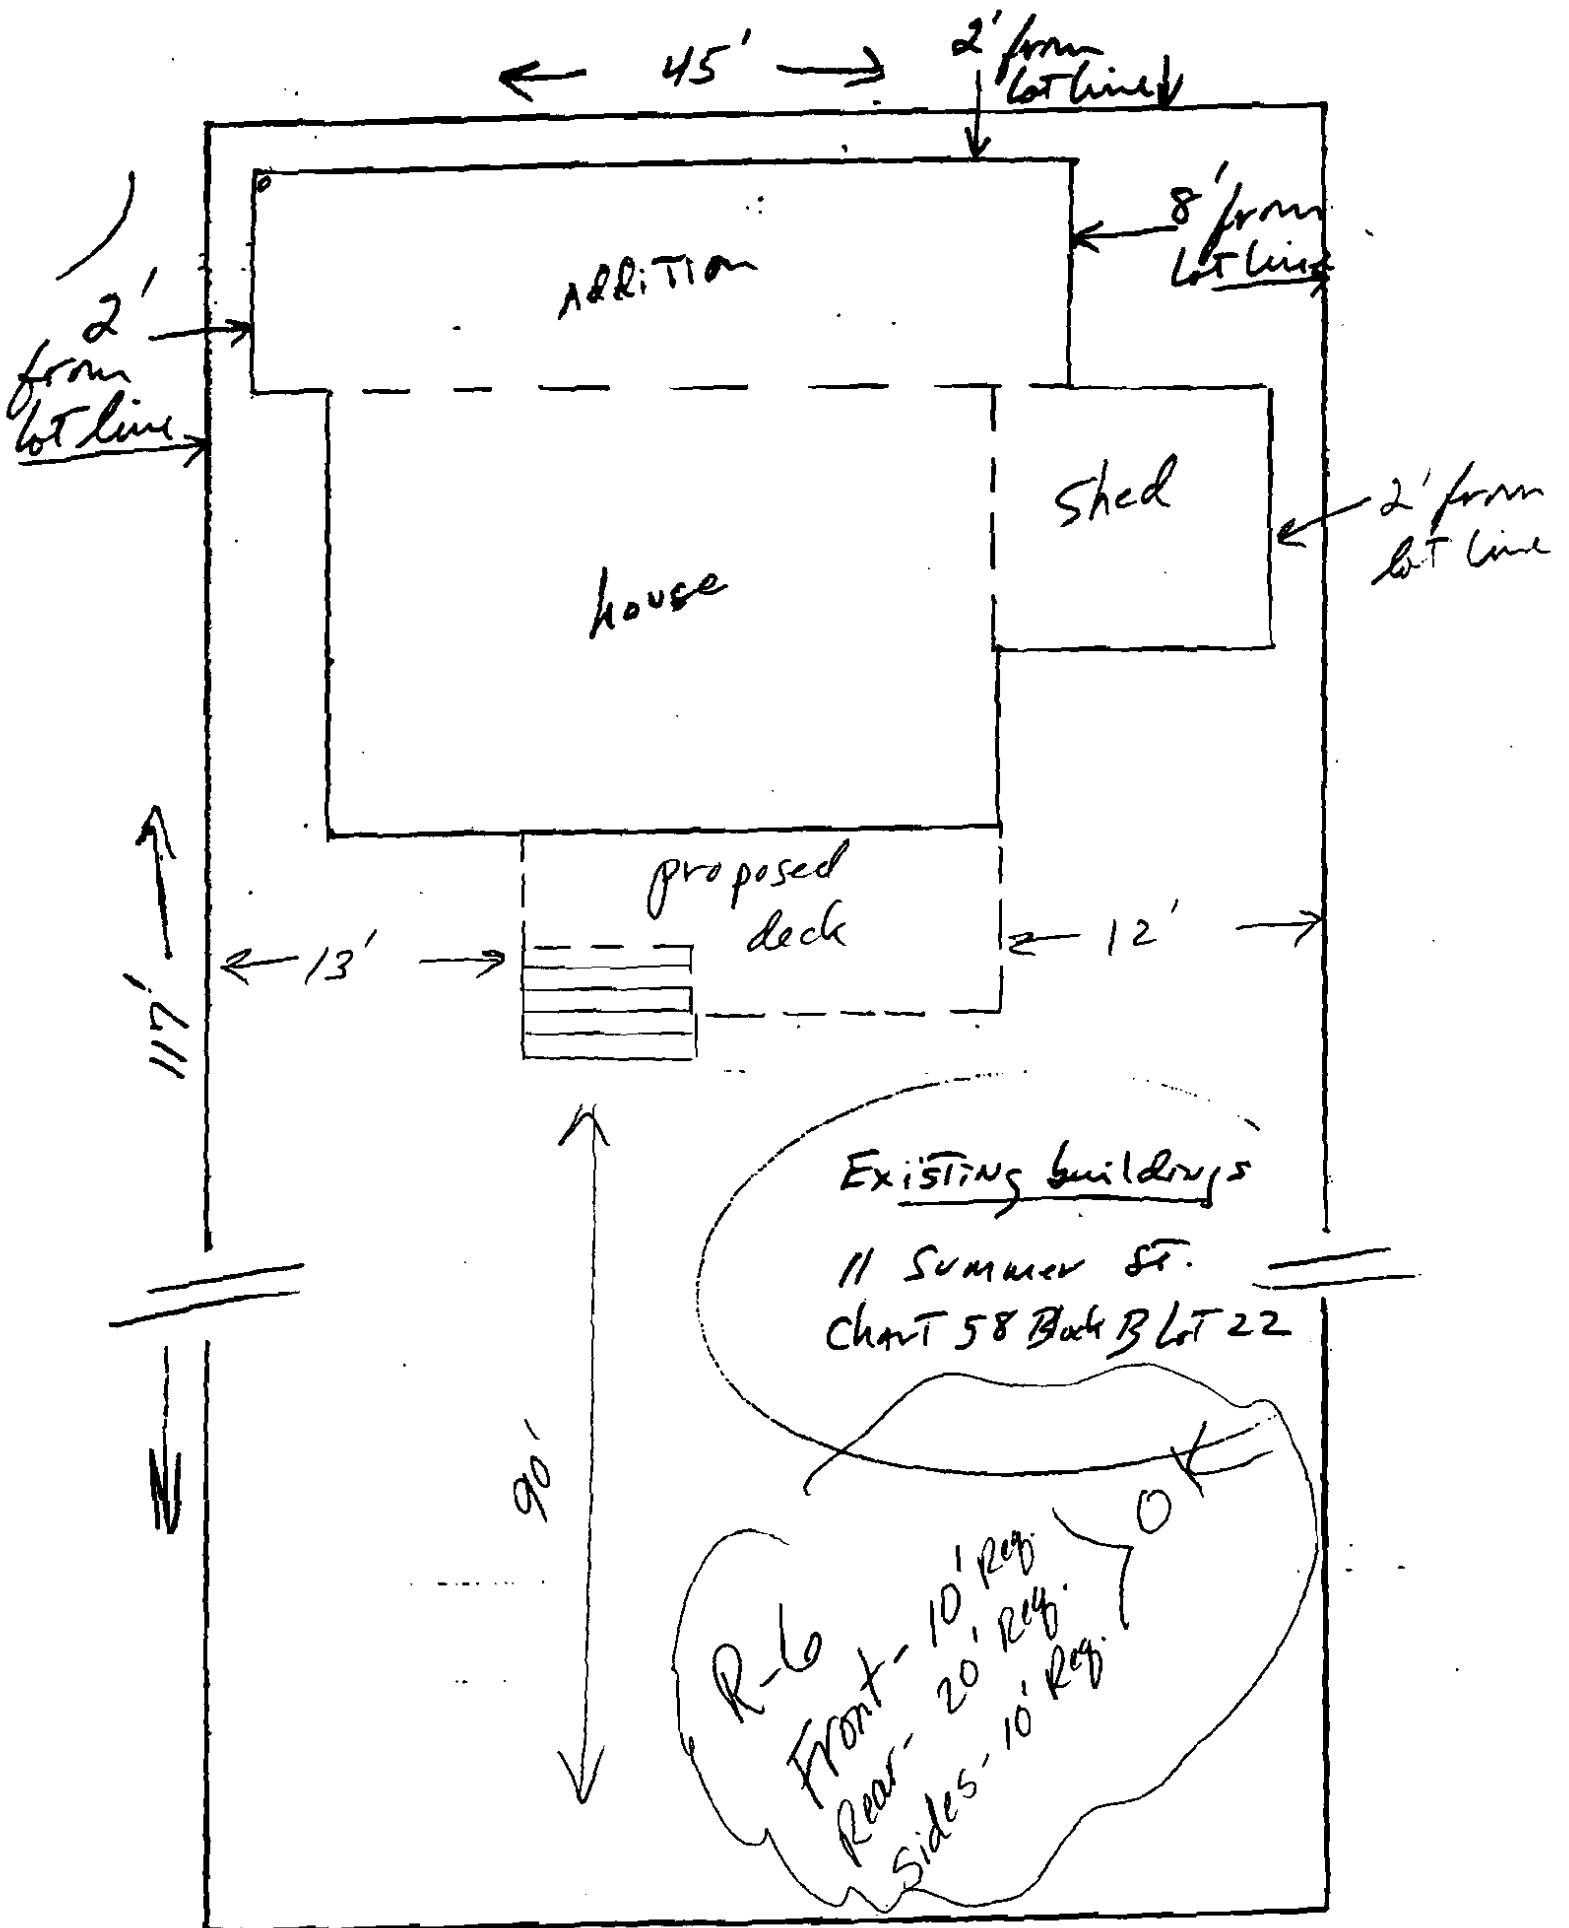 45'
2' from
lot line
8' from
lot line
Addition
2'
from
lot line
Shed
2' from
lot line
house
proposed
deck
13'
12'
117'
Existing buildings
11 Summer St.
Chart 58 Block B Lot 22
90'
OK
R-6
Front - 10' Req.
Rear - 20' Req.
Sides - 10' Req.